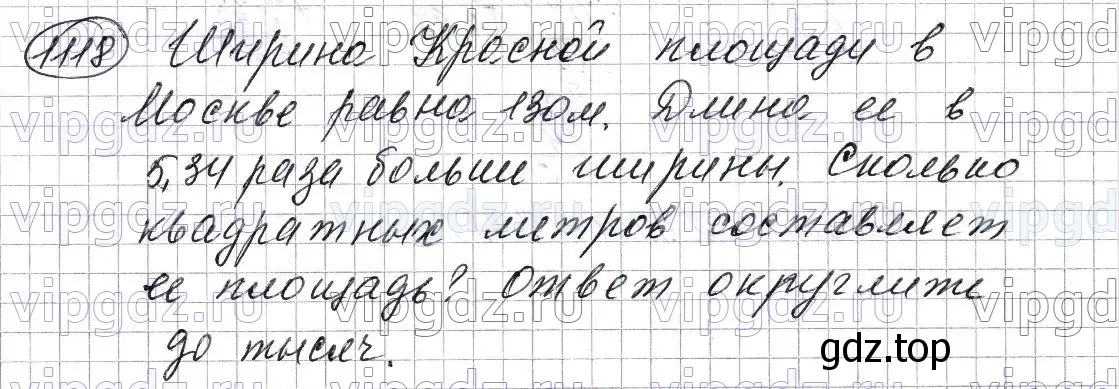 1118 Ширина Красной площади в
Москве равна 130 м. Длина ее в
5,34 раза больше ширины. Сколько
квадратных метров составляет
ее площадь? Ответ округлите
до тысяч.
gdz.top